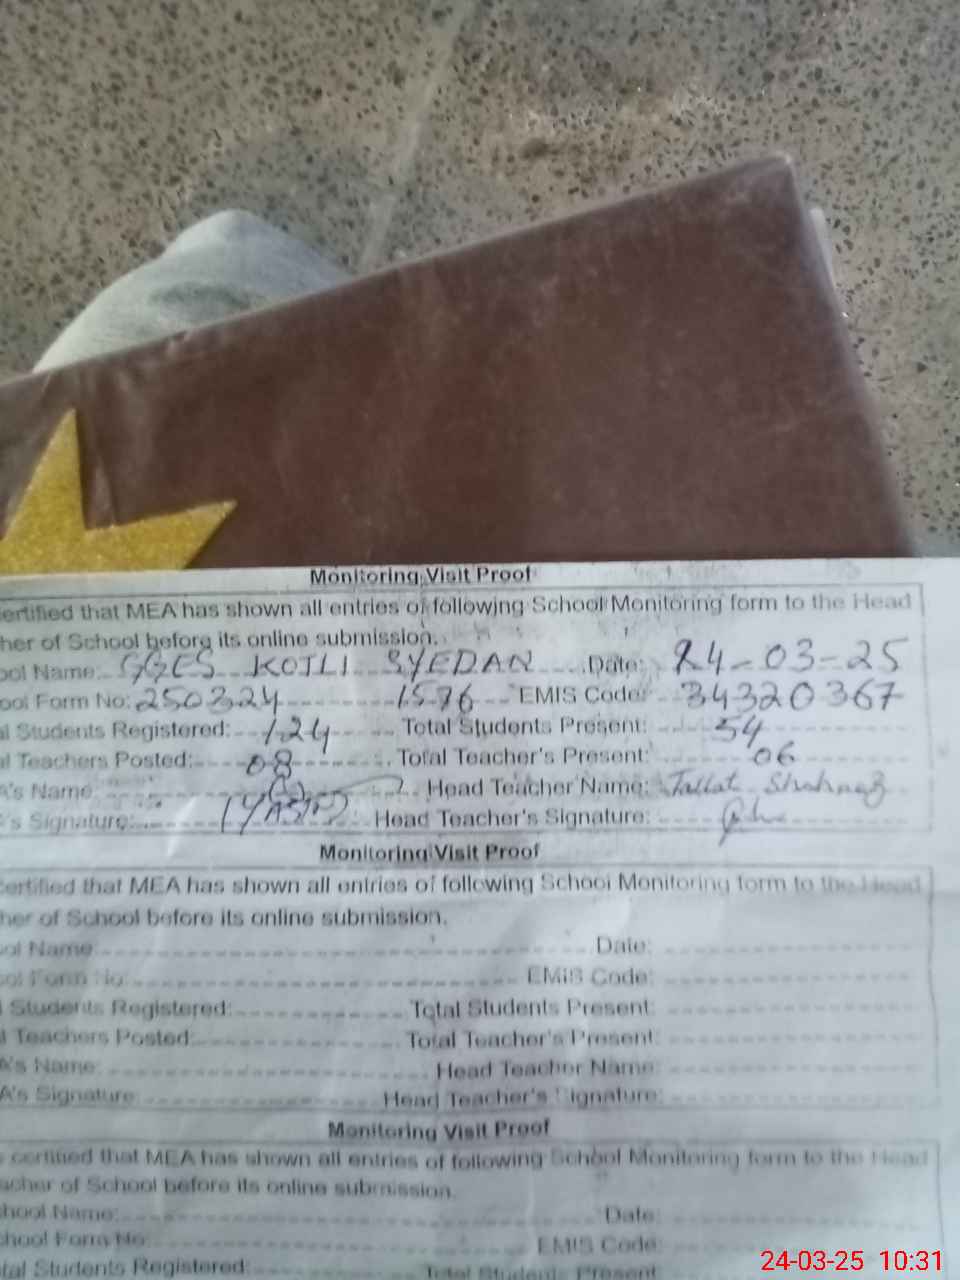 Monitoring Visit Proof
certified that MEA has shown all entries of following School Monitoring form to the Head
her of School before its online submission.
ool Name: GGES KOTLI SYEDAN Date: 24-03-25
ool Form No: 250324 1596 EMIS Code: 34320367
al Students Registered: 124 Total Students Present: 54
al Teachers Posted: 08 Total Teacher's Present: 06
A's Name: Head Teacher Name: Tallat Shahnaz
's Signature: Head Teacher's Signature:
Monitoring Visit Proof
certified that MEA has shown all entries of following School Monitoring form to the Head
her of School before its online submission.
ool Name Date:
ool Form No: EMIS Code:
l Students Registered: Total Students Present:
l Teachers Posted: Total Teacher's Present:
A's Name: Head Teacher Name:
A's Signature Head Teacher's Signature:
Monitoring Visit Proof
certified that MEA has shown all entries of following School Monitoring form to the Head
acher of School before its online submission.
chool Name: Date:
chool Form No: EMIS Code:
tal Students Registered: Total Students Present:
24-03-25 10:31